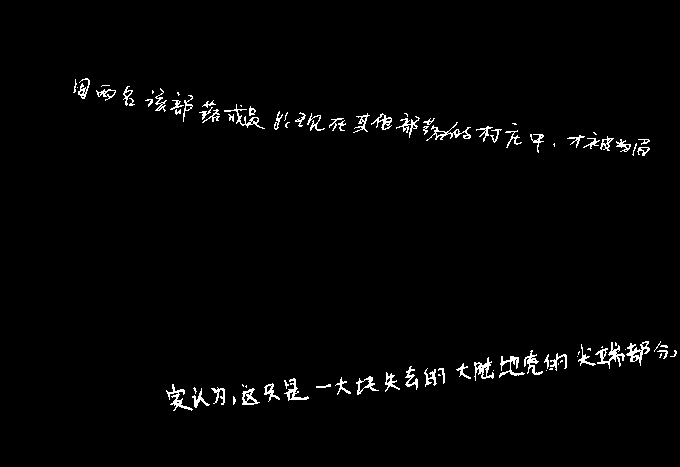 因两名该部落成员出现在其他部落的村庄中，才被当局
家认为，这只是一大块失去的大陆地壳的尖端部分。